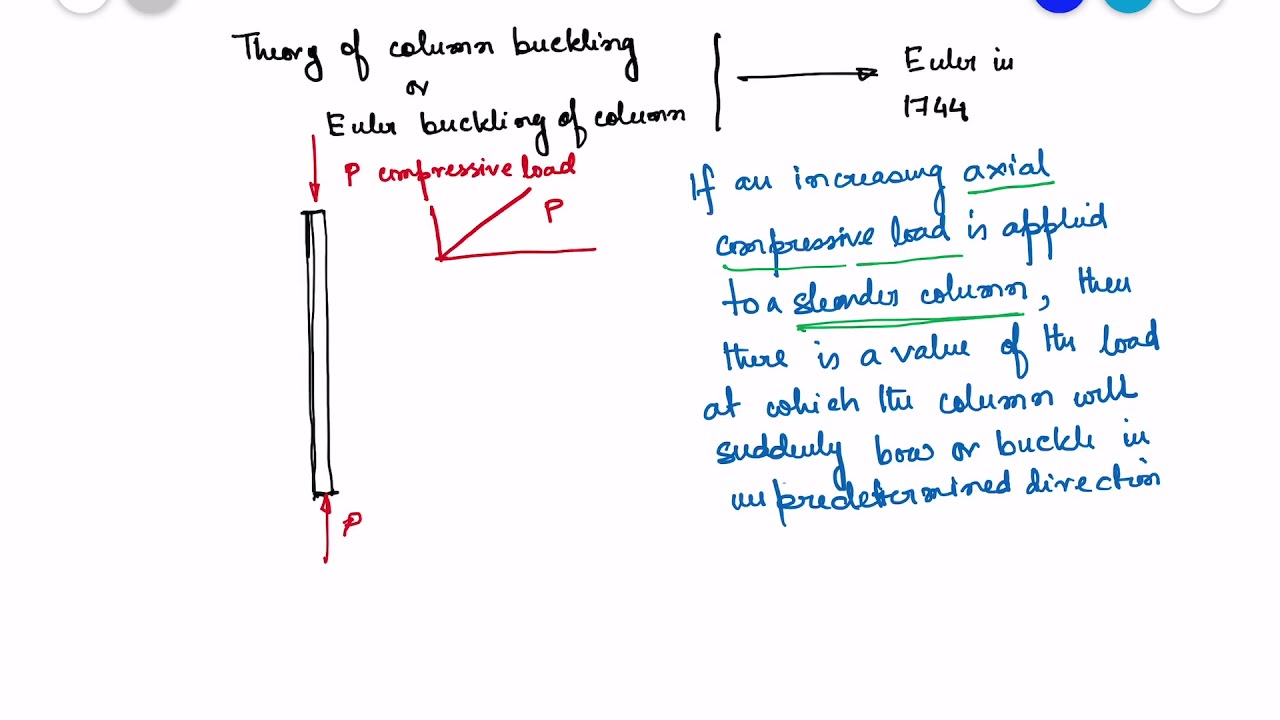 Theory of column buckling
or
Euler buckling of column
Euler in
1744
P compressive load
P
P
If an increasing axial
compressive load is applied
to a slender column, then
there is a value of the load
at which the column will
suddenly bow or buckle in
unpredetermined direction